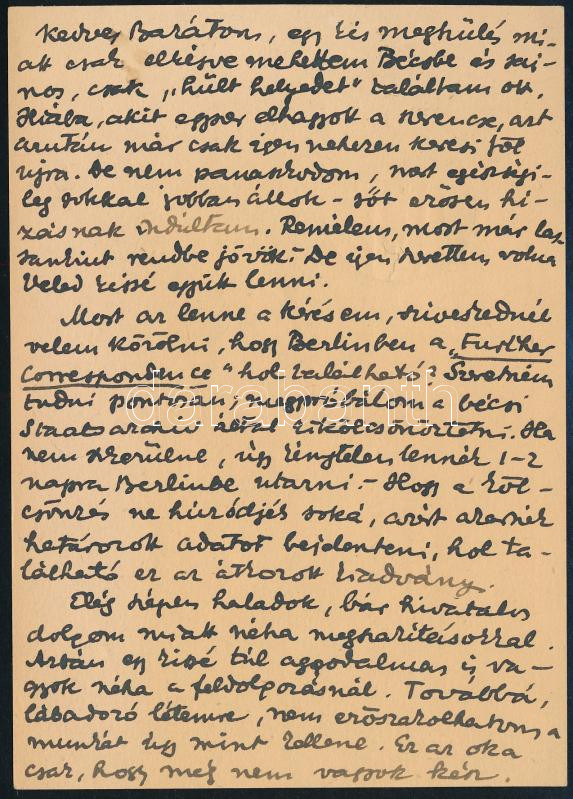 Kedves Barátom, egy kis meghülés mi-
att csak elkésve mehettem Bécsbe és saj-
nos, csak „hült helyedet" találtam ott.
Hiába, akit egyszer elhagyott a szerencse, azt
azután már csak igen nehezen keresi föl
ujra. De nem panaszkodom, mert egészségi-
leg sokkal jobban állok - sőt erősen hi-
zásnak indultam. Remélem, most már las-
sankint rendbe jövök. De igen szerettem volna
Veled kissé együtt lenni.
Most az lenne a kérésem, sziveskednél
velem közölni, hogy Berlinben a „Further
Correspondence" hol található? Szeretném
tudni pontosan, megpróbálom a bécsi
Staatsarchiv által kikölcsönöztetni. Ha
nem sikerülne, úgy kénytelen lennék 1-2
napra Berlinbe utazni. - Hogy a köl-
csönzés ne húzódjék soká, azért szeretnék
határozott adatot bejelenteni, hol ta-
lálható ez az átkozott kiadvány.
Elég szépen haladok, bár hivatalos
dolgom miatt néha megszakításokkal.
Aztán egy kissé túl aggodalmas is va-
gyok néha a feldolgozásnál. Továbbá,
lábadozó létemre, nem erőszakolhatom a
munkát úgy mint kellene. Ez az oka
csak, hogy még nem vagyok kész.
darabanth